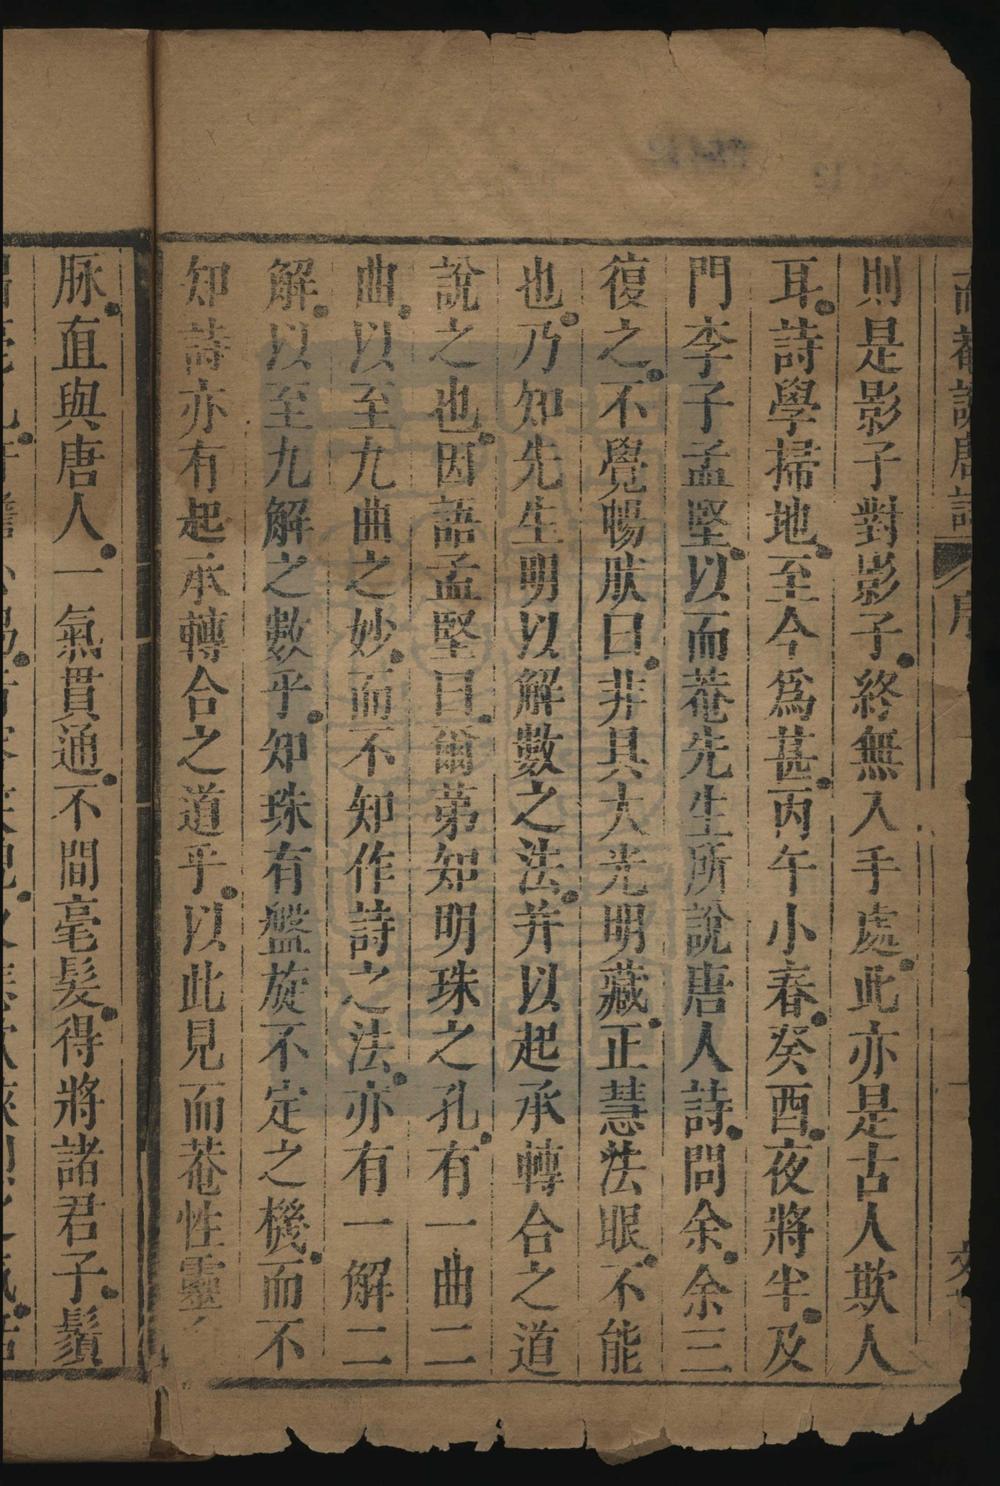 而菴說唐詩
序
則是影子對影子終無入手處此亦是古人欺人
耳詩學掃地至今爲甚丙午小春癸酉夜將半及
門李子孟堅以而菴先生所說唐人詩問余余三
復之不覺暢肰曰非具大光明藏正慧法眼不能
也乃知先生明以解數之法并以起承轉合之道
說之也因語孟堅曰爾苐知明珠之孔有一曲二
曲以至九曲之妙而不知作詩之法亦有一解二
解以至九解之數乎知珠有盤旋不定之機而不
知詩亦有起承轉合之道乎以此見而菴性靈
脉直與唐人一氣貫通不間毫髮得將諸君子鬚